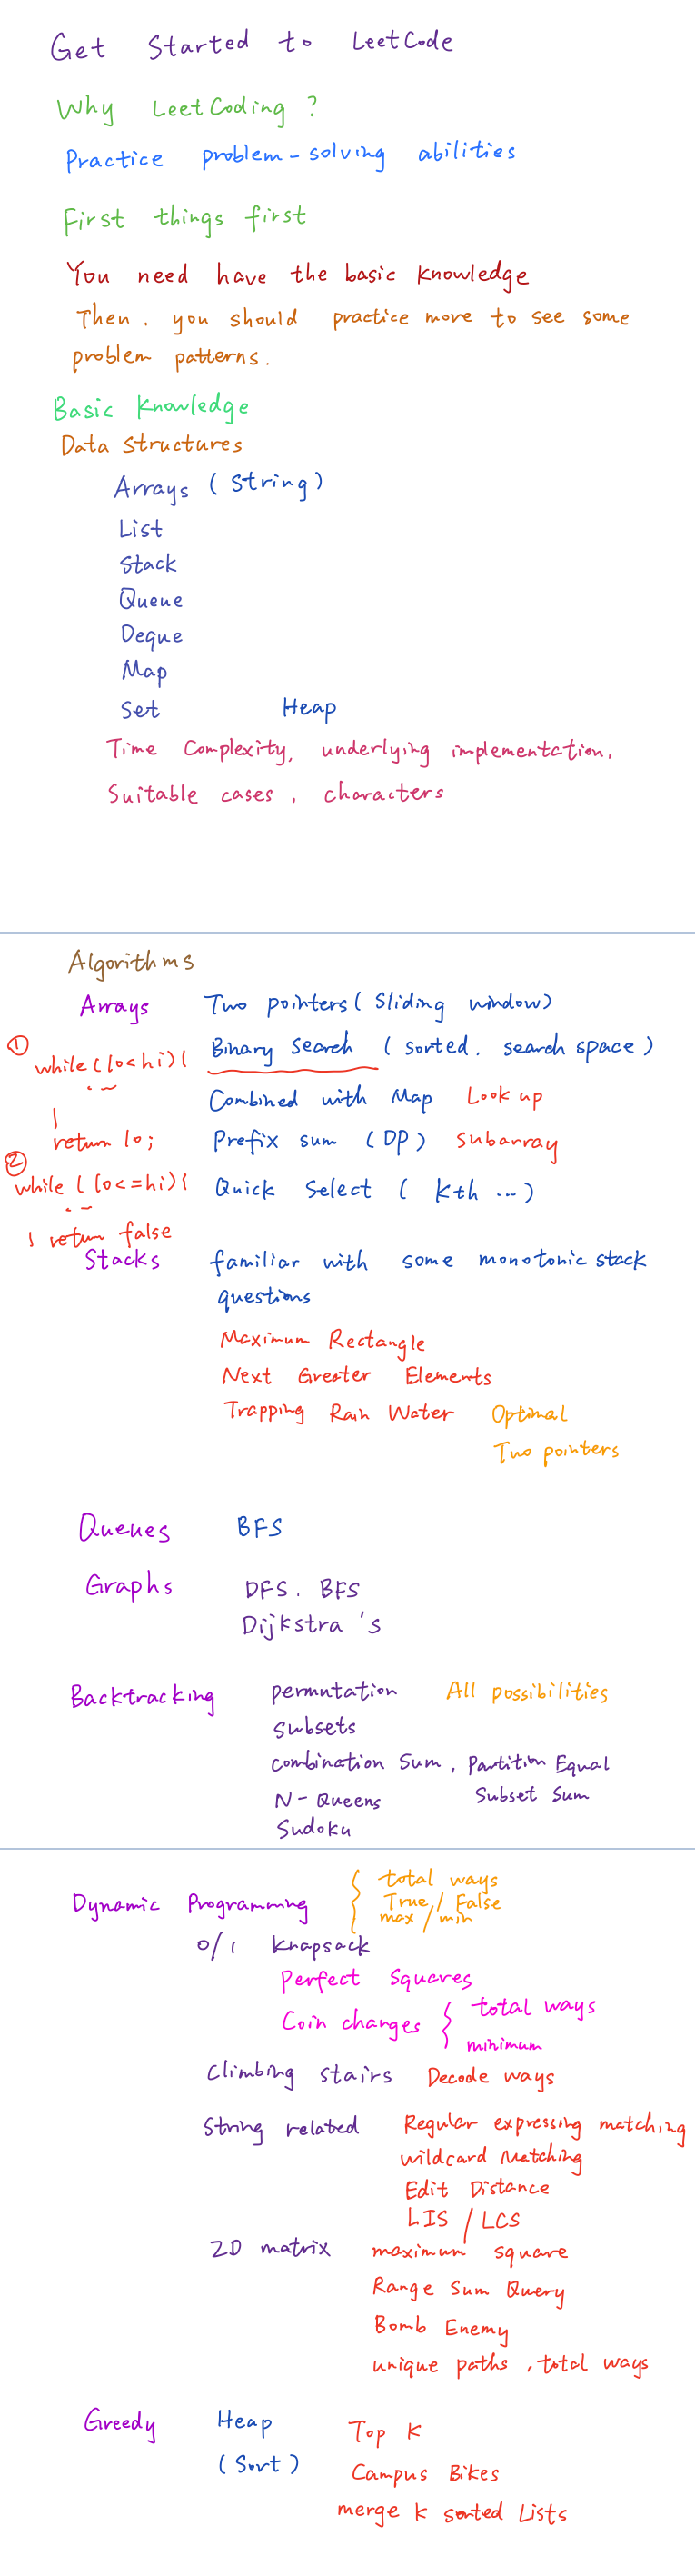 Get Started to LeetCode
Why LeetCoding ?
Practice problem-solving abilities
First things first
You need have the basic knowledge
Then. you should practice more to see some
problem patterns.
Basic Knowledge
Data Structures
Arrays (String)
List
Stack
Queue
Deque
Map
Set Heap
Time Complexity, underlying implementation,
Suitable cases, characters
Algorithms
Arrays Two pointers (Sliding window)
① while (lo<hi) { Binary Search (sorted. search space)
Combined with Map Look up
} return lo; Prefix sum (DP) Subarray
② while (lo<=hi) { Quick Select (Kth ...)
} return false
Stacks familiar with some monotonic stack
questions
Maximum Rectangle
Next Greater Elements
Trapping Rain Water Optimal
Two pointers
Queues BFS
Graphs DFS. BFS
Dijkstra's
Backtracking permutation All possibilities
Subsets
Combination Sum, Partition Equal
N-Queens Subset Sum
Sudoku
Dynamic Programming { total ways
True / False
max / min
0/1 Knapsack
Perfect Squares
Coin changes { total ways
minimum
Climbing stairs Decode ways
String related Regular expressing matching
Wildcard Matching
Edit Distance
LIS / LCS
2D matrix maximum square
Range Sum Query
Bomb Enemy
unique paths, total ways
Greedy Heap Top K
(Sort) Campus Bikes
merge k sorted Lists